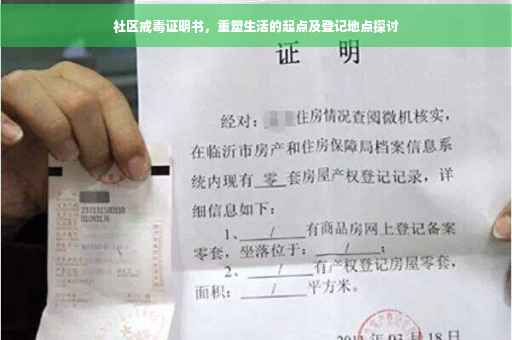 社区戒毒证明书，重塑生活的起点及登记地点探讨
证 明
经对：住房情况查阅微机核实，
在临沂市房产和住房保障局档案信息系
统内现有 零 套房屋产权登记记录，详
细信息如下：
1、 / 有商品房网上登记备案
零套，坐落位于： / ；
2、 / 有产权登记房屋零套，
面积： / 平方米。
03月18日